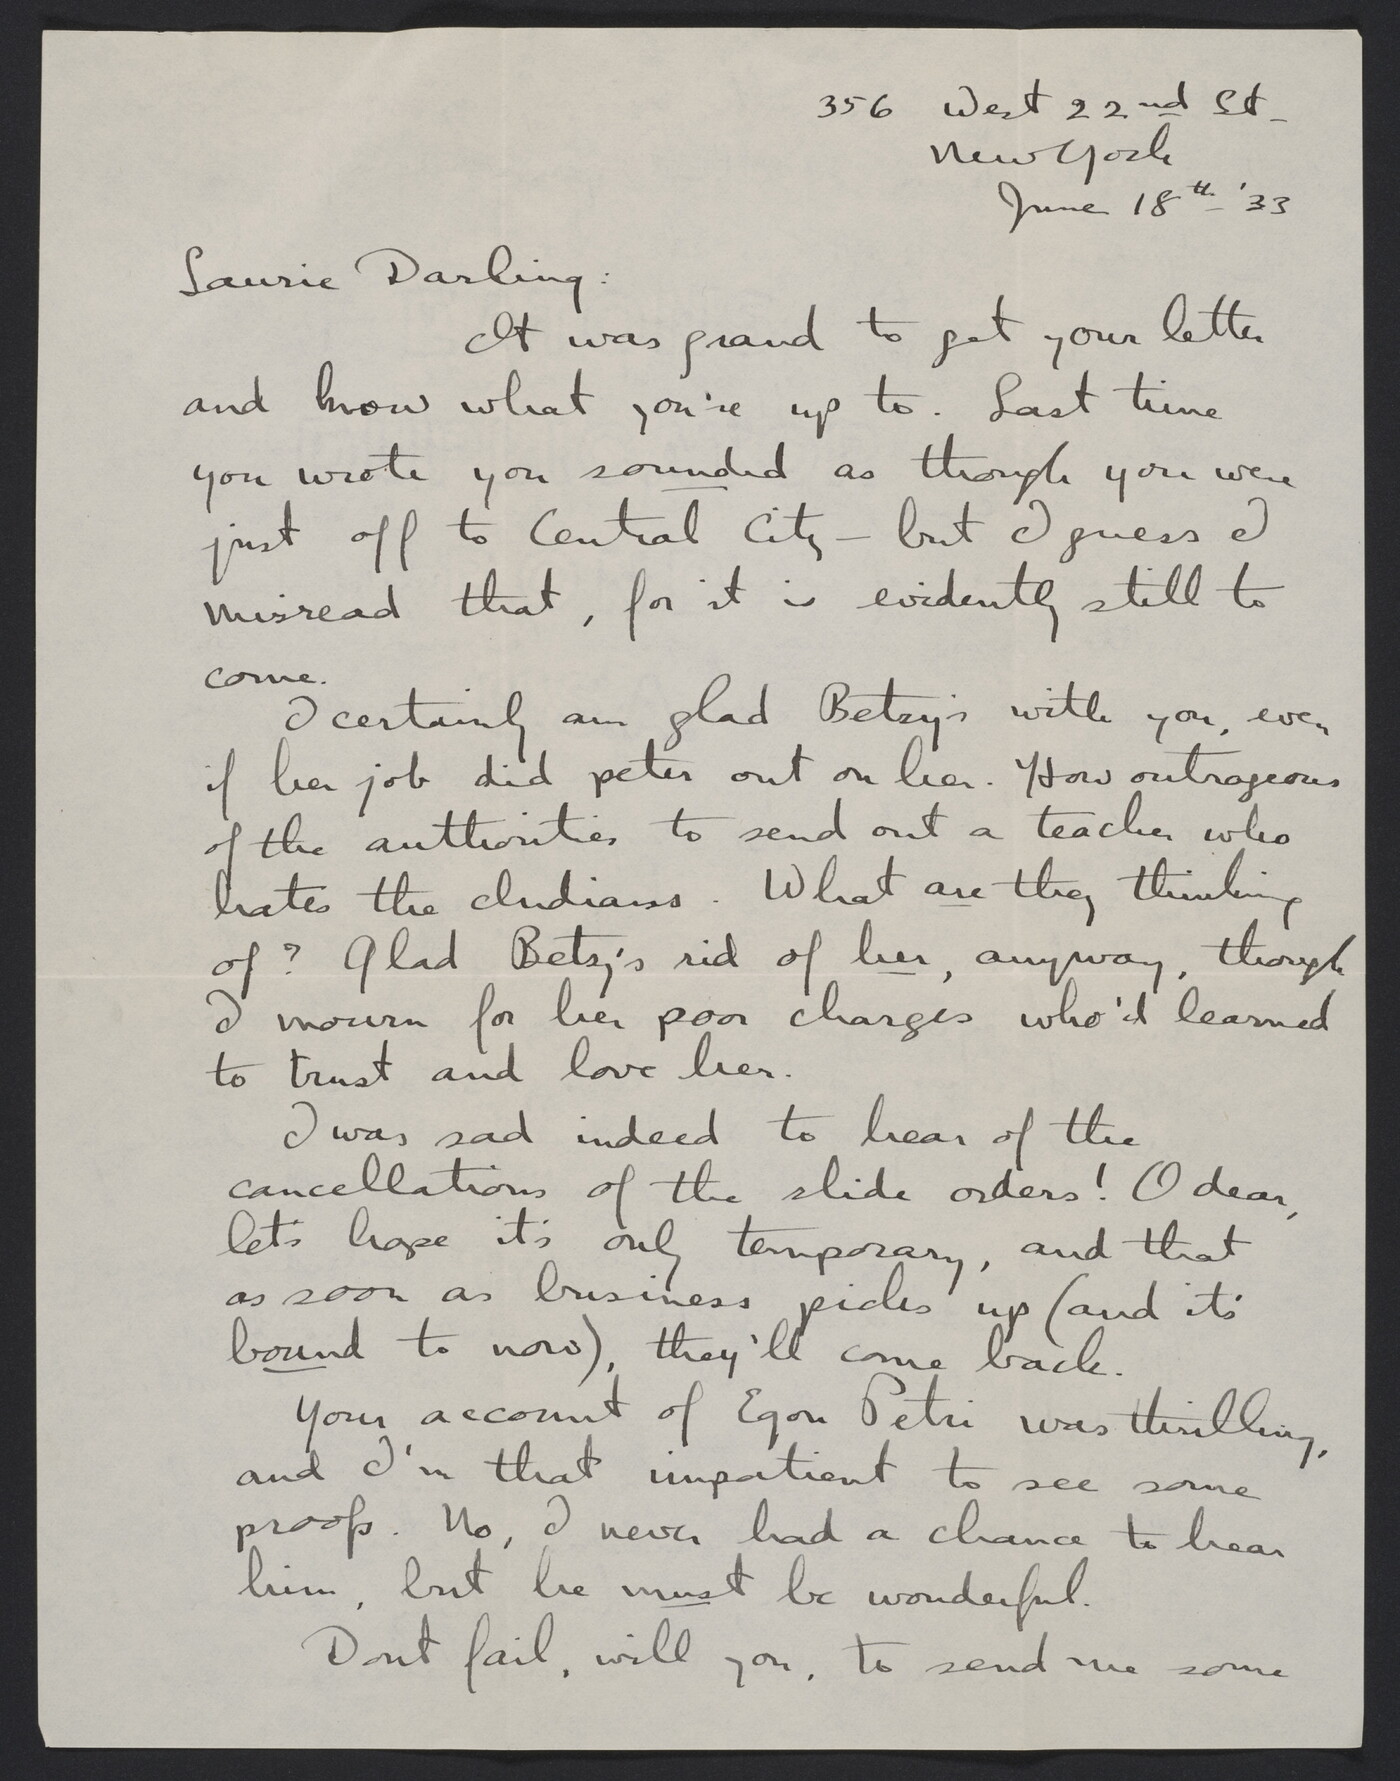 356 West 22nd St.
New York
June 18th '33
Laurie Darling:
It was grand to get your letter
and know what you're up to. Last time
you wrote you sounded as though you were
just off to Central City – but I guess I
misread that, for it is evidently still to
come.
I certainly am glad Betsy's with you, even
if her job did peter out on her. How outrageous
of the authorities to send out a teacher who
hates the Indians. What are they thinking
of? Glad Betsy's rid of her, anyway, though
I mourn for her poor charges who'd learned
to trust and love her.
I was sad indeed to hear of the
cancellations of the slide orders! O dear,
let's hope it's only temporary, and that
as soon as business picks up (and it's
bound to now), they'll come back.
Your account of Egon Petri was thrilling,
and I'm that impatient to see some
proofs. No, I never had a chance to hear
him, but he must be wonderful.
Dont fail, will you, to send me some